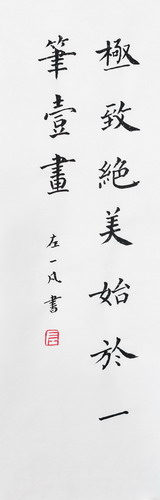 極致絕美始於一
筆壹畫
左一凡書